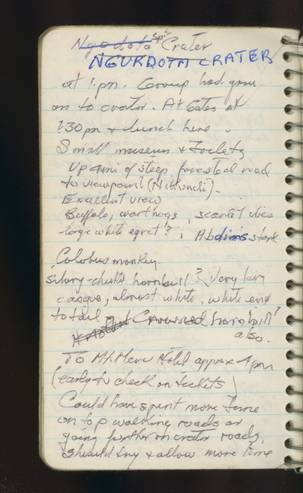 Ngodota sp? Crater
NGURDOTA CRATER
at 1pm. Group had gone
on to crater. At Gates at
1:30pm & Lunch here.
Small museum & toilets
Up 4mi of steep, forested road
to viewpoint
Excellent view
Buffalo, warthogs, scarlet
large white egret?, Abdims stork
Colobus monkey.
Silvery-cheek'd hornbill? Very large
casque, almost white, white end
to tail - Crowned hornbill
also.
To Mt. Meru Hotel approx 4pm
(early to check on tickets)
Could have spent more time
on top walking roads or
going further on crater roads.
Should try & allow more time